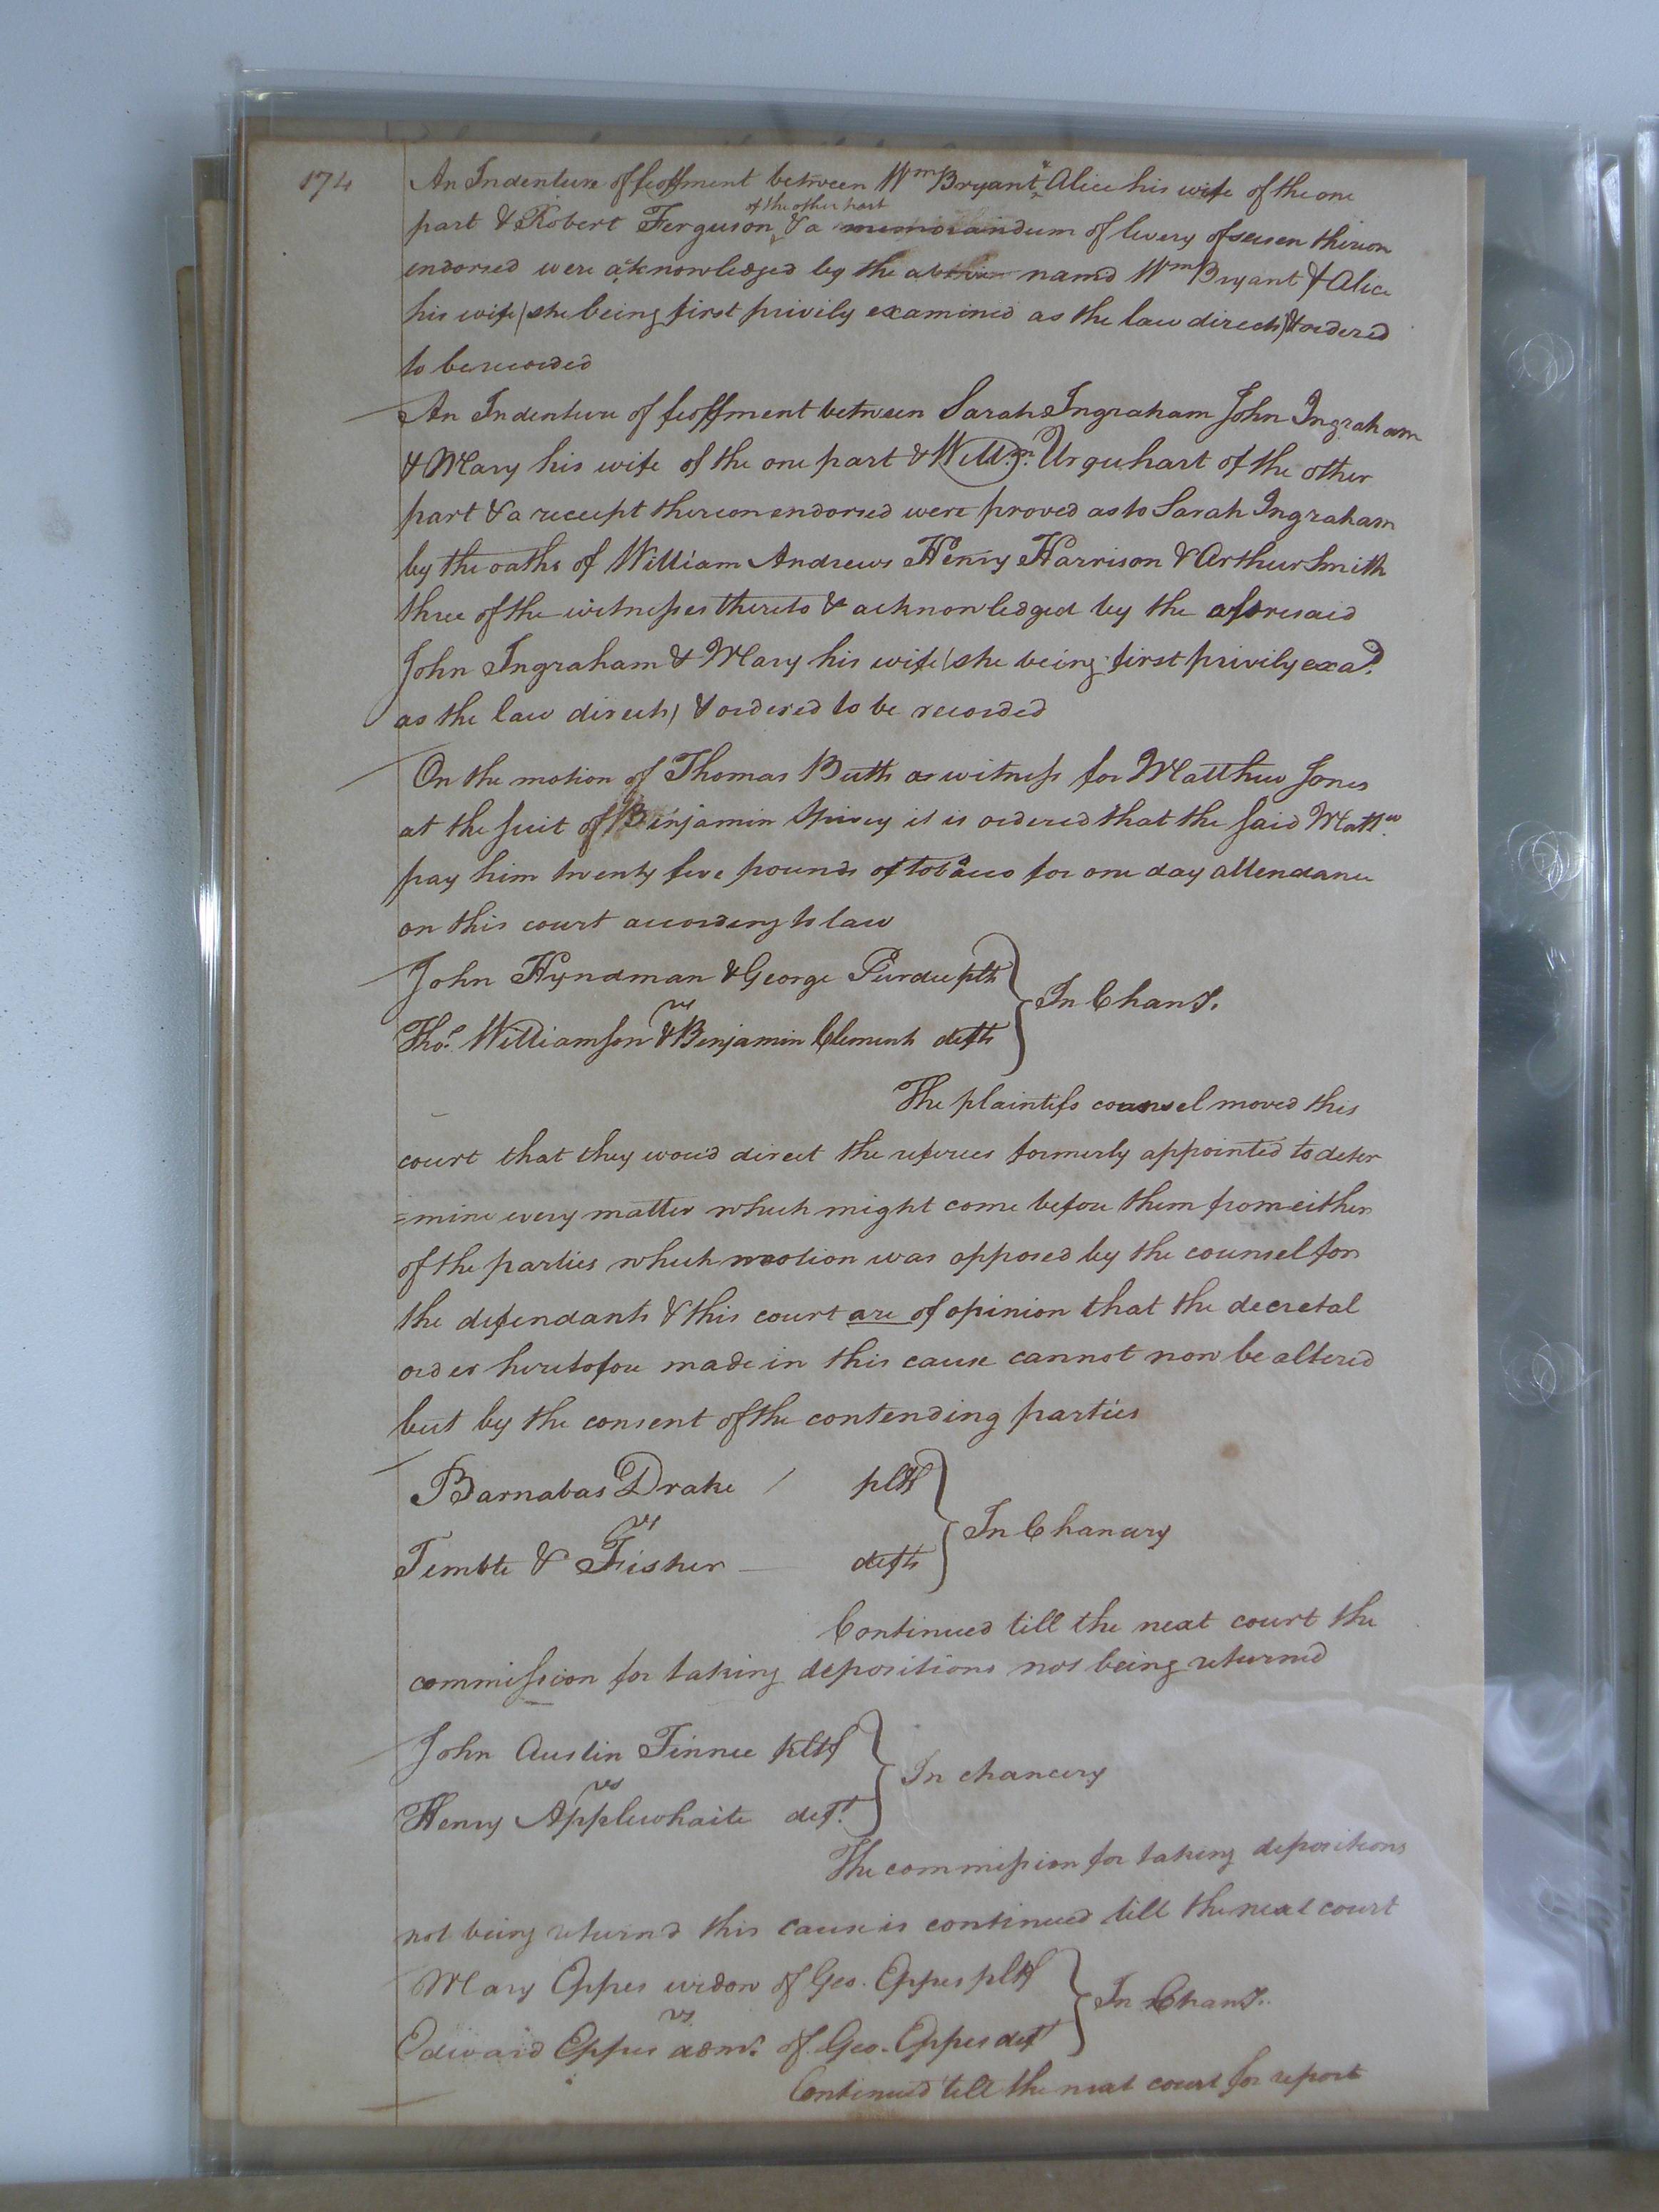 174
An Indenture of feoffment between Wm Bryant & Alice his wife of the one
part & Robert Ferguson of the other part & a memorandum of livery of seisen thereon
endorsed were acknowledged by the above named Wm Bryant & Alice
his wife (she being first privily examined as the law directs) & ordered
to be recorded
An Indenture of feoffment between Sarah Ingraham John Ingraham
& Mary his wife of the one part & Willm. Urquhart of the other
part & a receipt thereon endorsed were proved as to Sarah Ingraham
by the oaths of William Andrews Henry Harrison & Arthur Smith
three of the witnesses thereto & acknowledged by the aforesaid
John Ingraham & Mary his wife (she being first privily exad.
as the law directs) & ordered to be recorded
On the motion of Thomas Butts as witness for Matthew Jones
at the suit of Benjamin Spivey it is ordered that the said Mattw.
pay him twenty five pounds of tobacco for one day attendance
on this court according to law
John Hyndman & George Purdie plts
vs
Thos. Williamson & Benjamin Clements defts
In Chany.
The plaintifs counsel moved this
court that they woud direct the referees formerly appointed to deter
=mine every matter which might come before them from either
of the parties which motion was opposed by the counsel for
the defendants & this court are of opinion that the decretal
order heretofore made in this cause cannot now be altered
but by the consent of the contending parties
Barnabas Drake / pltf
vs
Temble & Fisher — defts
In Chancery
Continued till the next court the
commission for taking depositions not being returned
John Austin Finnee pltf
vs
Henry Applewhaite deft.
In chancery
The commission for taking depositions
not being returnd this cause is continued till the next court
Mary Eppes widow of Geo. Eppes pltf
vs
Edward Eppes admr. of Geo. Eppes deft
In Chany.
Continued till the next court for report